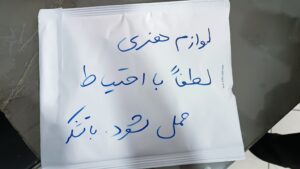 لوازم هنری
لطفاً با احتیاط
حمل شود. باتشکر